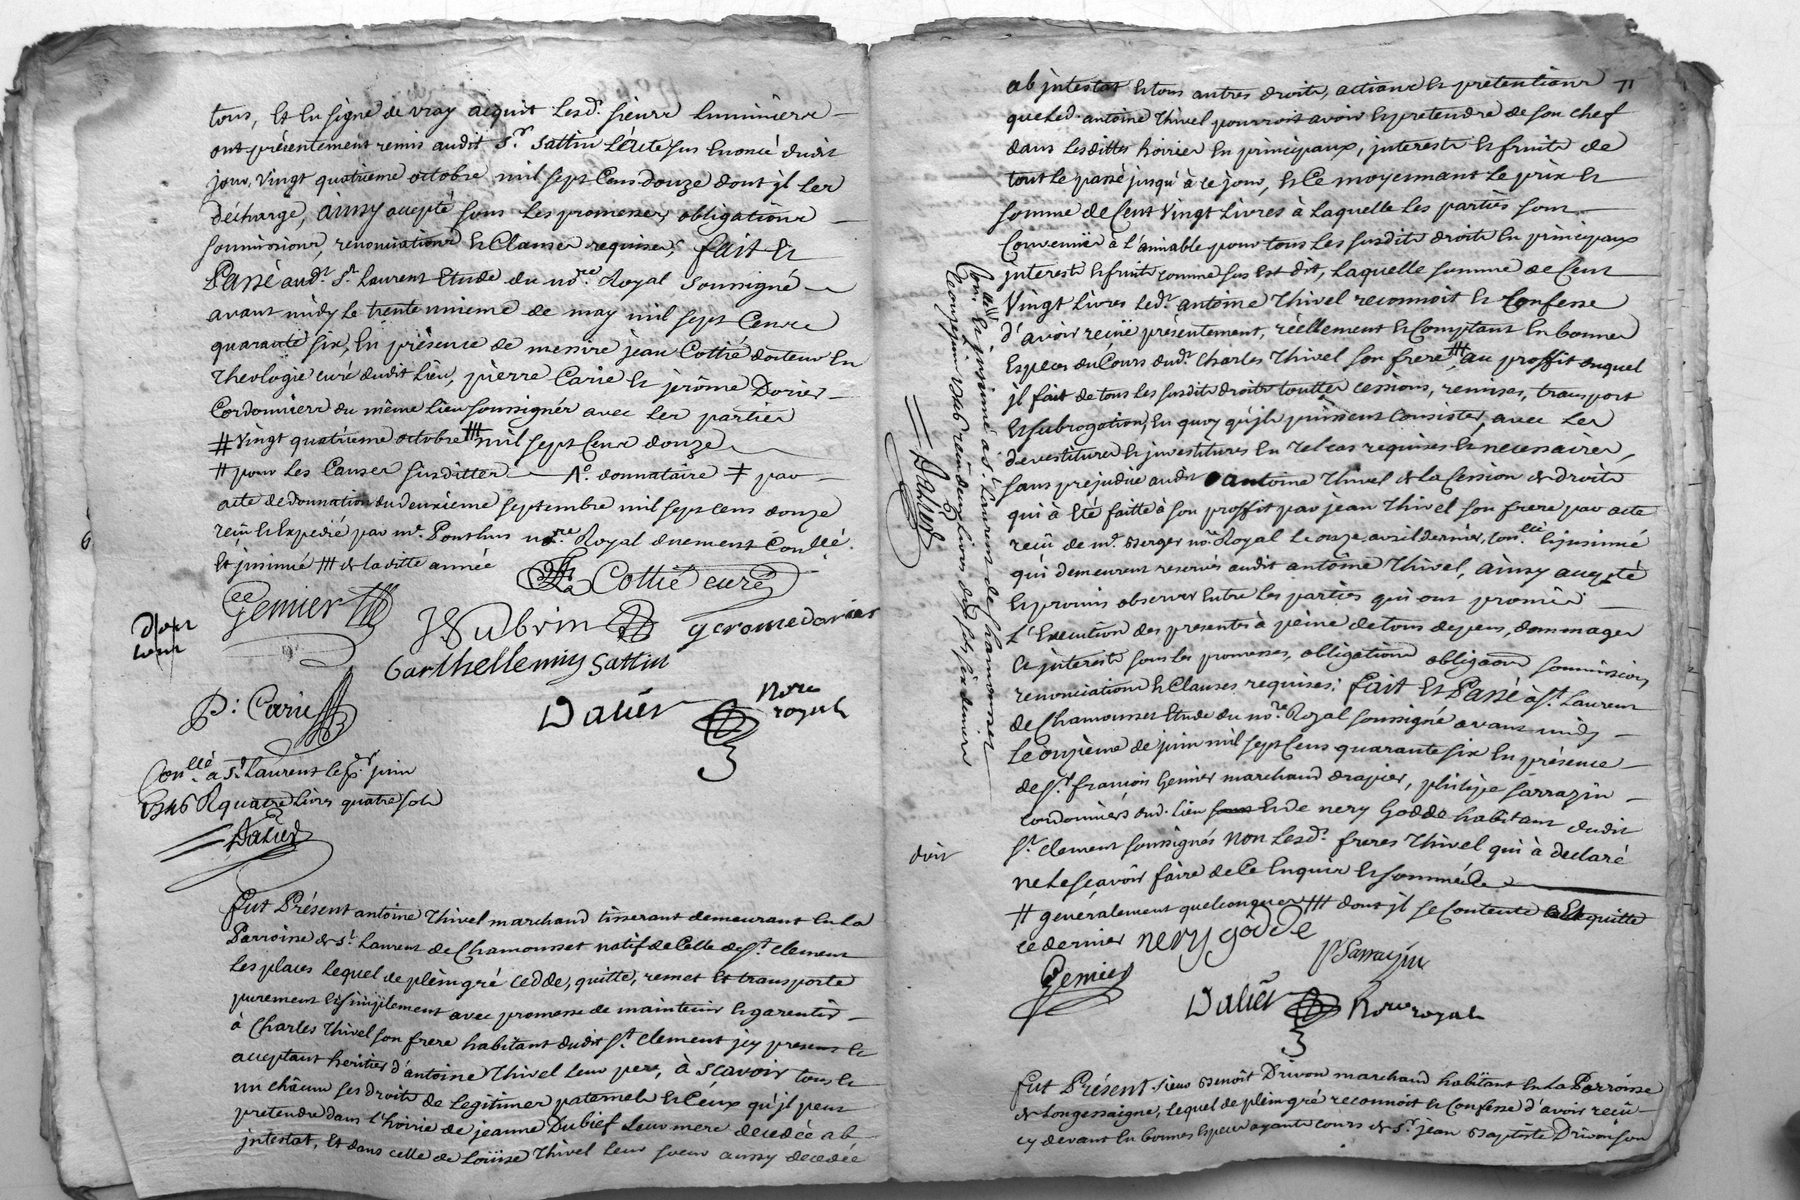 tous, Et En signe de vray acquit Lesd. sieurs Luminiers
ont présentement remis audit Sr. Sattin L'acte sus Enoncé dudit
jour, Vingt quatrieme octobre mil sept Cens douze dont jl Les
décharge, ainsy accepté sous Les promesses obligations
soumissions, renonciations & Clauses requises; fait Et
Passé aud. St. Laurent Etude du nore. Royal soussigné
avant midy Le trente unieme de may mil sept Cens
quarante six, En présence de messire jean Cottié docteur En
Theologie curé dudit Lieu, pierre Carie Et jerôme Dorier
Cordonniers du même Lieu soussignés avec Les parties
# Vingt quatrieme octobre ## mil sept Cens douze
# pour Les Causes susdittes No. donnataire ≠ par
acte de donnation du deuxième septembre mil sept cens douze
reçu & Expedié par me. Ponthus nore. Royal duement Conllé.
Et jnsinué ## de la ditte année
Cottié curé
Gemier
J Subrin
gerome dorier
barthellemy sattin
P: Carie
Dalier
Nore
royal
Conllé à St. Laurent le pr. juin
1746 R quatre Livres quatre sols
Dalier
Fut Présent antoine Thivel marchand tisserant demeurant En La
Parroisse de St. Laurent de Chamousset natif de Celle de St. Clement
Les places Lequel de plein gré cedde, quitte, remet Et transporte
purement & simplement avec promesse de maintenir & garentir
à Charles Thivel son frere habitant dudit St. Clement jcy present &
acceptant heritier d'antoine Thivel Leur pere, à scavoir tous &
un châcun ses droits de Legitimes paternels & Ceux qu'jl peut
pretendre dans L'hoirie de jeanne Dubief Leur mere decedée ab
jntestat, Et dans celle de Loüise Thivel Leur soeur aussy decedée
71
ab jntestat & tous autres droits, actions & pretentions
que Led. antoine Thivel pourroit avoir & pretendre de son chef
dans Lesdittes hoiries En principaux, jnterests & fruits de
tout Le passé jusqu'à ce jour, & Ce moyennant Le prix &
somme de Cent Vingt Livres à Laquelle Les parties sont
Convenües à L'amiable pour tous Les susdits droits En principaux
jnterests & fruits comme sus Est dit, Laquelle somme de Cent
Vingt Livres Led. antoine Thivel reconnoit & Confesse
d'avoir reçüe présentement, réellement & Comptant En bonnes
Especes du Cours dud. Charles Thivel son frere ## au proffit duquel
jl fait de tous Les susdits droits toutes cessions, remises, transport
& subrogation, En quoy qu'jls puissent Consister, avec Les
devestitures & jnvestitures En tel cas requises & necessaires,
sans prejudice audit antoine Thivel de La Cession de droits
qui à Eté faitte à son proffit par jean Thivel son frere par acte
reçû de me. Berger nore. Royal Le onze avril dernier, Conllé & jnsinué
qui demeurent reservés audit antoine Thivel, ainsy accepté
& promis observer Entre Les parties qui ont promis
L'Execution des presentes à peine de tous depens, dommages
& jnterests sous Les promesses, obligations obligaōns soumissions
renonciations & Clauses requises; fait Et Passé à St. Laurent
de Chamousset Etude du nore. Royal soussigné avant midy
Le onzième de juin mil sept Cens quarante six En présence
de Sr. françois Gemier marchand drapier, philipe sarrazin
cordonniers dud. Lieu & de nery Godde habitant dudit
St. Clement soussignés non Lesd. freres Thivel qui à declaré
ne Le sçavoir faire de Ce Enquis & sommés
# generalement quelconques ## dont jl se Contente & quitte
ce dernier
nery godde
P Sarrazin
Gemier
Dalier
Nore royal
Conllé & jnsinué à St. Laurent de Chamousset
Le onze juin 1746 reçu deux Livres dix sols six deniers
Dalier
doit
Fut Présent sieur Benoit Drivon marchand habitant En La Parroisse
de Longessaigne, Lequel de plein gré reconnoit & Confesse d'avoir reçû
cy devant En bonnes Especes ayants cours de Sr. jean Baptiste Drivon son